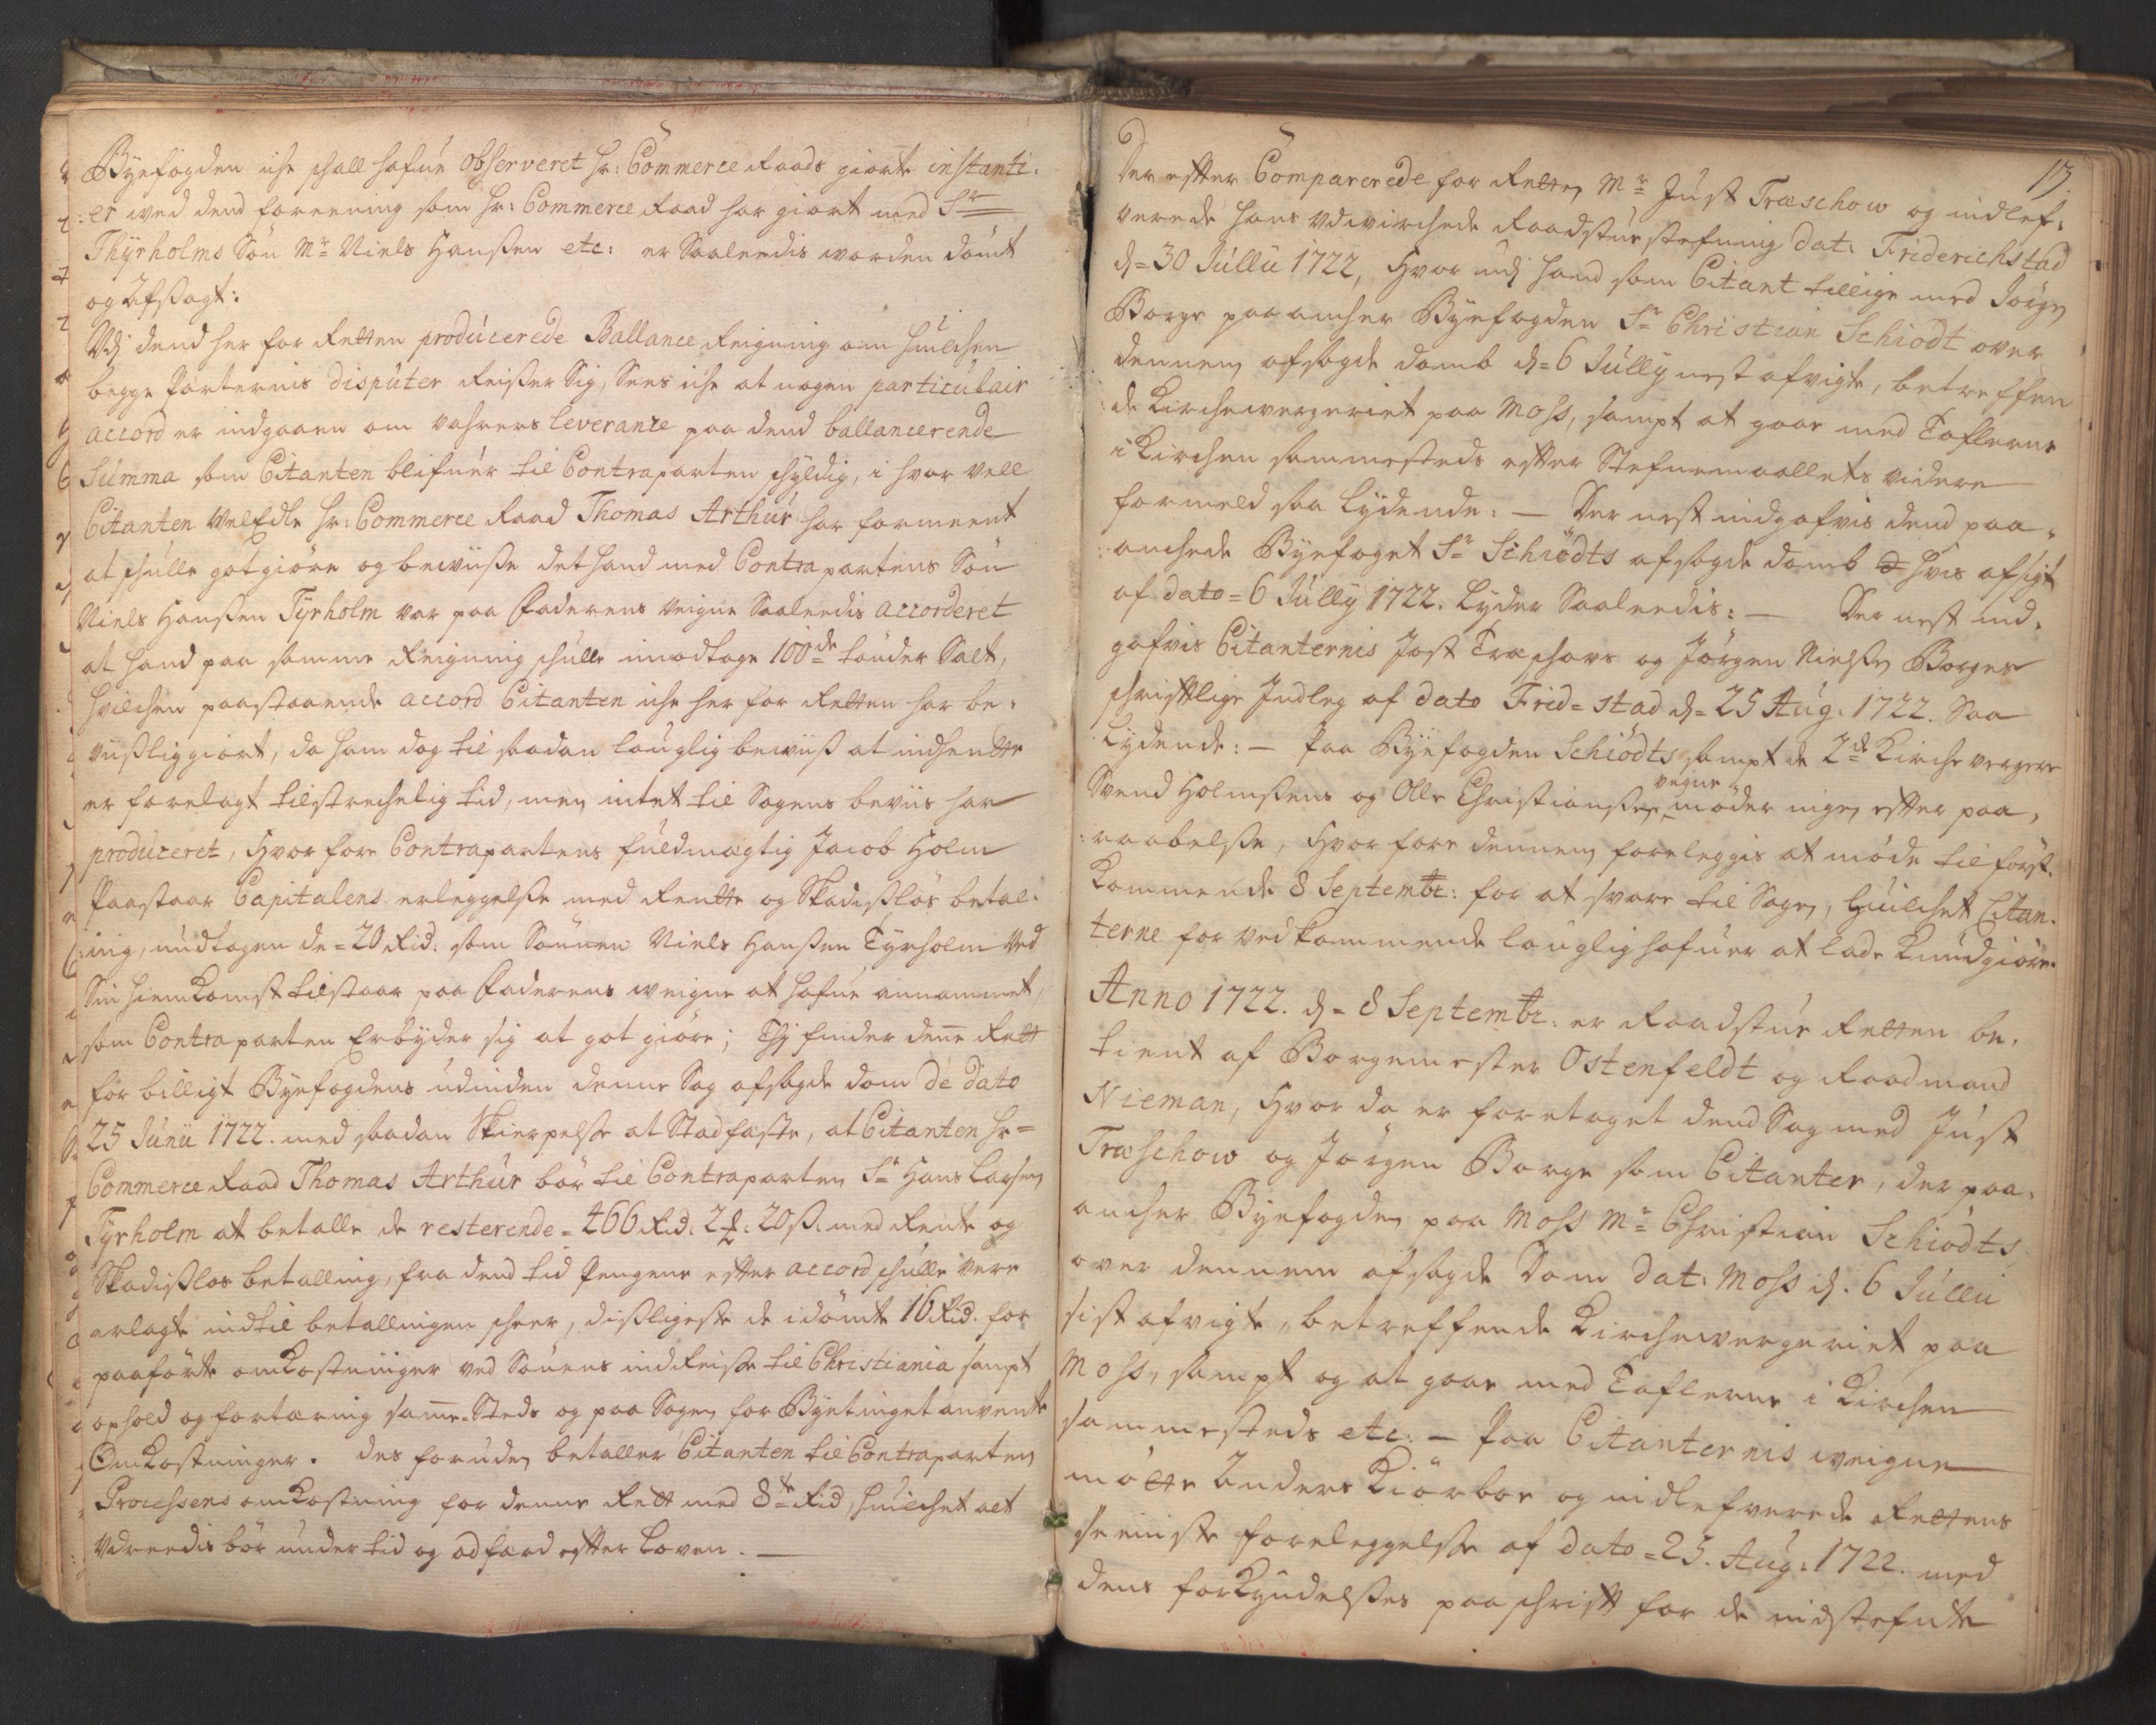 Byefogden iche schall hafue observeret Hr: Commerce Raads giorte instanti-
:er med dend foreening som Hr: Commerce Raad har giort med Sr
Thyrholms Sön Mr Niels Hanssen etc: er Saaleedis worden dömt
og Afsagt:
Udj dend her for Retten producerede Ballance Reigning om huilchen
begge Parternis disputer Reisser Sig, Sees iche at nogen particulair
accord er indgaaen om vahrers leverantze paa dend ballancerende
Summa som Citanten blifuer til Contraparten schyldig, i hvor vell
Citanten VelEdle Hr: Commerce Raad Thomas Arthur har formeent
at schulle gotgiöre og bewiisse det hand med Contrapartens Sön
Niels Hanssen Tyrholm var paa Faderens Veigne Saaleedis accorderet
at hand paa samme Reigning schulle imodtage 100de tönder Salt,
Hvilchen paastaaende accord Citanten iche her for Retten har be-
viissliggiort, da ham dog til saadan lauglig beviiss at indhendte
er forelagt tilstrechelig tid, men intet til Sagens beviis har
produceret, Hvorfore Contrapartens fuldmægtig Jacob Holm
Paastaar Capitalens erleggelsse med Rentte og Skadisslös betal-
:ing, undtagen de = 20 Rid. som Sönnen Niels Hanssen Tyrholm Ved
Sin hiemkomst tilstaar paa Faderens weigne at hafue annammet,
som Contraparten Erbyder sig at got giöre; Thj finder denne Rett
for billigt Byefogdens udinden denne Sag afsagde dom de dato
25 Junii 1722. med saadan Skierpelsse at Stadfæste, at Citanten Hr=
Commerce Raad Thomas Arthur bör til Contraparten Sr Hans Larsen
Tyrholm at betalle de resterende = 466 Rid. 2 &. 20 ss. med Rente og
Skadisslos betalling, fra dend tid Pengene efter accord schulle Vere
erlagt indtil betallingen scheer, dissligeste de idömte 16 Rid. for
paaförte omkostninger ved Sönens ind Reisse til Christiania sampt
ophold og fortæring samme-Steds og paa Sagen for Byetinget anvente
Omkostninger. des foruden betaller Citanten til Contraparten
Processens omkostning for denne Rett med 8te Rid, huilchet alt
Udreedis bör under tid og adfærd efter Loven. —
13.
Der efter Comparerede for Retten Mr Just Træschow og indlef-
verede hans Udvirchede Raadstuestefning dat: Friderichstad
d= 30 Jullii 1722, Hvor udj hand som Citant tillige med Jörgen
Borge paaancher Byefogden Sr Christian Schiödt over
dennem afsagde domb d= 6 Jully nest afvigte, betreffen
:de Kirchewergeriet paa Moss, sampt at gaae med Taflerne
i Kirchen sammesteds efter Stefnemaallets videre
formeld saa lydende: — Der nest indgafvis dend paa-
:anchede Byefoget Sr Schiödts afsagde domb hvis afsigt
af dato = 6 Jully 1722. lyder Saaleedis: — Der nest ind-
gafvis Citanternis Jost Træschows og Jörgen Nielssen Borges
schriftlige Indleg af dato Frid=stad d= 25 Aug: 1722. Saa
Lydende: — Paa Byefogden Schiödts sampt de 2de Kirche vergere
Svend Holmssens og Olle Christianssens veigne möder ingen efter paa-
:raabelsse, Hvorfore dennem foreleggis at möde til först-
kommende 8 Septembr: for at svare til Sagen, huilchet Citan-
terne for vedkommende lauglig hafuer at lade kundgiöre.
Anno 1722. d= 8 Septembr: er Raadstue Retten be-
tient af Borgemester Ostenfeldt og Raadmand
Nieman, Hvor da er foretaget dend Sag med Just
Træschow og Jörgen Borge som Citanter, der paa-
ancher Byefogden paa Moss Mr Christian Schiödts
over dennem afsagde Dom dat: Moss d. 6 Jullii
sist afvigte, betreffende Kirchewergeriet paa
Moss, sampt og at gaae med Taflerne i Kirchen
sammesteds etc: — Paa Citanternis weigne
mötte Anders Kiörboe og indlefverede Rettens
seeniste foreleggelsse af dato = 25. Aug: 1722. med
dens forkyndelsses paaschrift for de indstefnte